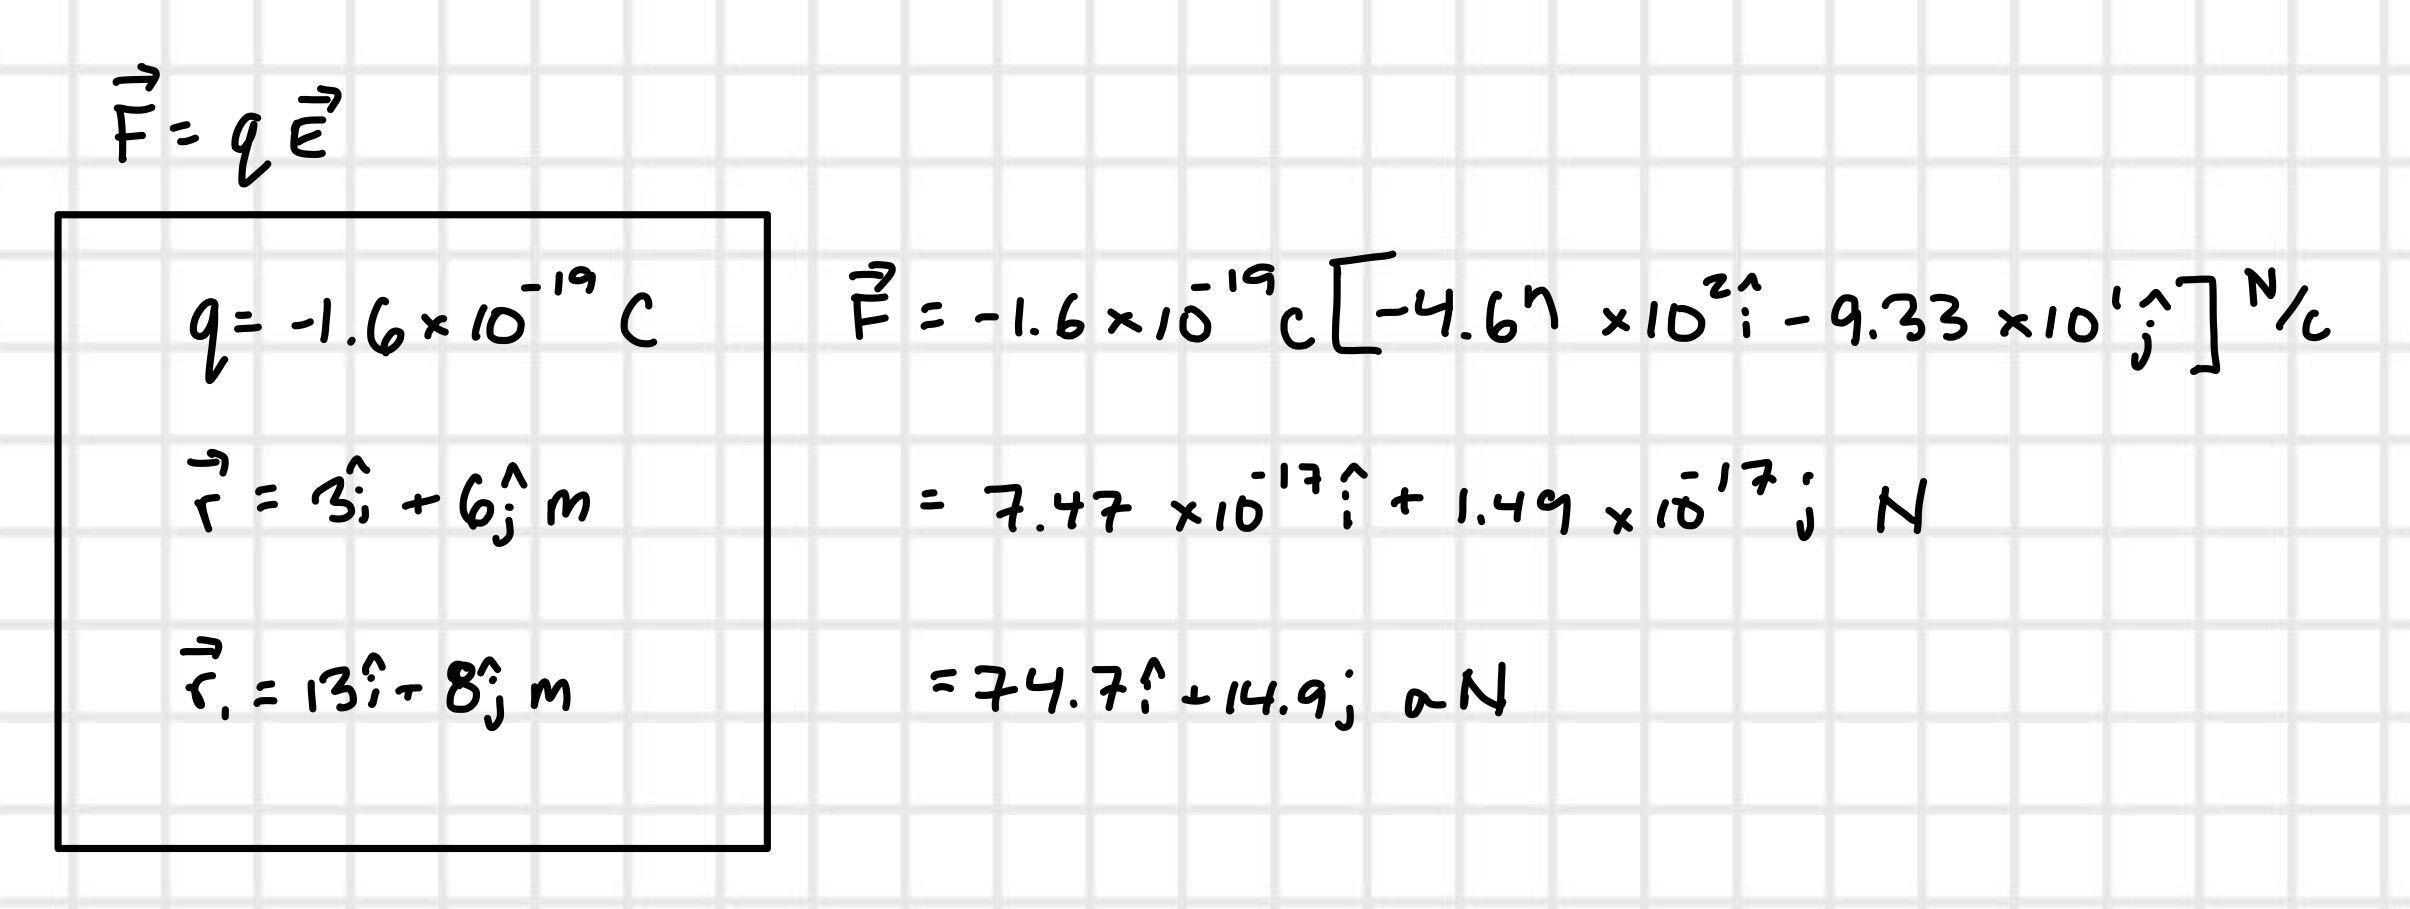 F⃗ = q E⃗
q = -1.6 × 10⁻¹⁹ C
r⃗ = 3î + 6ĵ m
r⃗₁ = 13î + 8ĵ m
F⃗ = -1.6 × 10⁻¹⁹ C [-4.67 × 10² î - 9.33 × 10¹ ĵ] N/C
= 7.47 × 10⁻¹⁷ î + 1.49 × 10⁻¹⁷ j N
= 74.7 î + 14.9 j aN